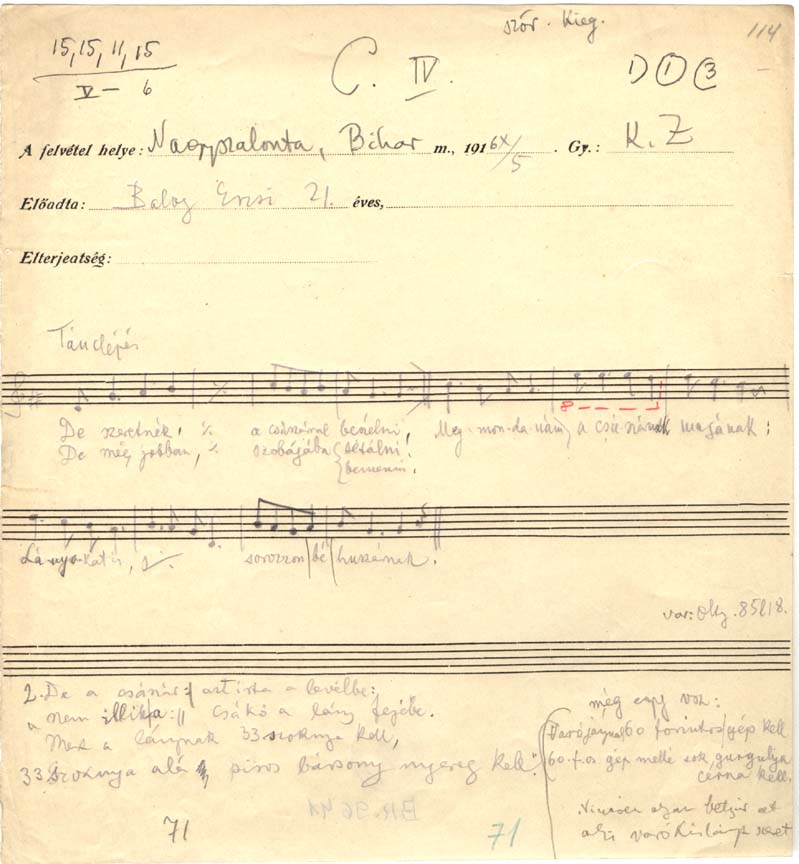 szór. Kieg.
114
15, 15, 11, 15
V — 6
C. IV.
1) ① ③
A felvétel helye: Nagyszalonta, Bihar m., 1916 X/5. Gy.: K. Z
Előadta: Balog Erzsi 21. éves,
Elterjeatség:
Tánclépés
De szeretnék, ٪ a császárral beszélni, Meg-mon-da-nám a csá-szárnak magának:
De még jobban, ٪ szobájába sétálni.
bemenni.
8
Lá-nyo-kat is, ٪ sorozzon bé huszárnak.
var: Olty. 85218.
2. De a császár :/ azt írta a levélbe:
nem illik a :// csákó a lány fejébe.
Mer a lánynak 33 szoknya kell,
33 szoknya alá piros bársony nyereg kell.
még egy vsz:
Varójánynak 60 forintos gép kell
60 f-os gép mellé sok gurgulya
cérna kell.
BR. 9641
71
71